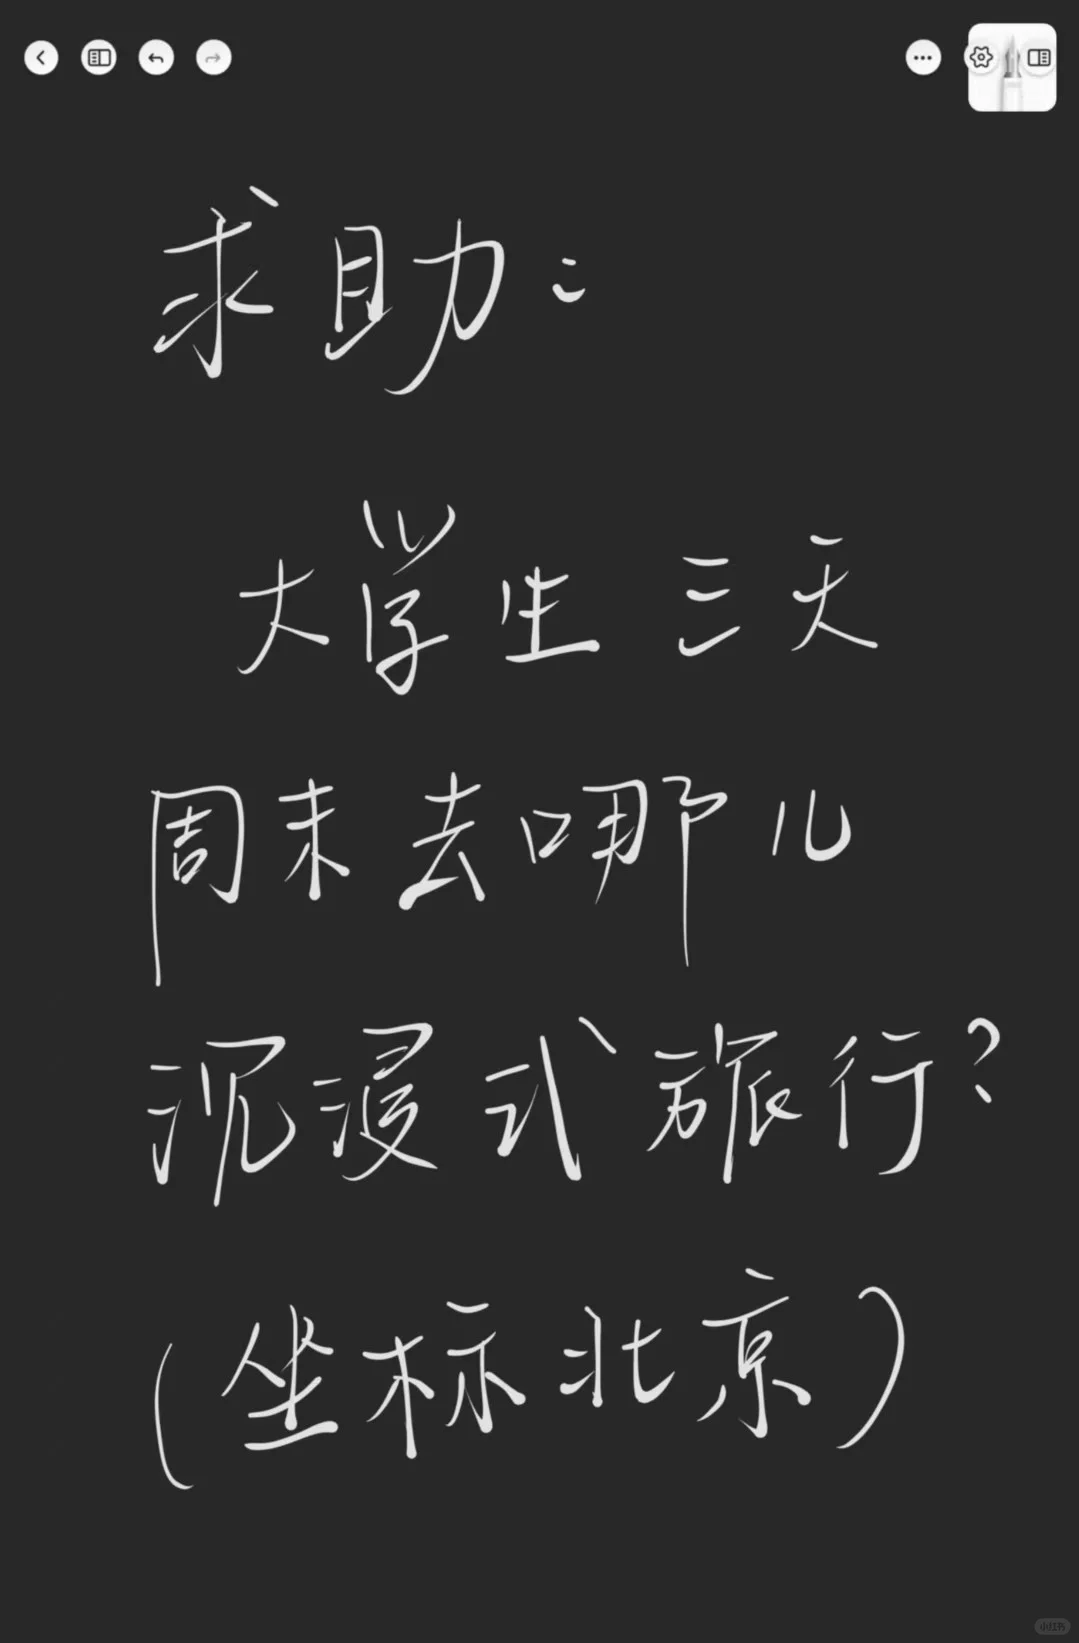 求助：
大学生 三天
周末去哪儿
沉浸式旅行？
（坐标北京）
小红书